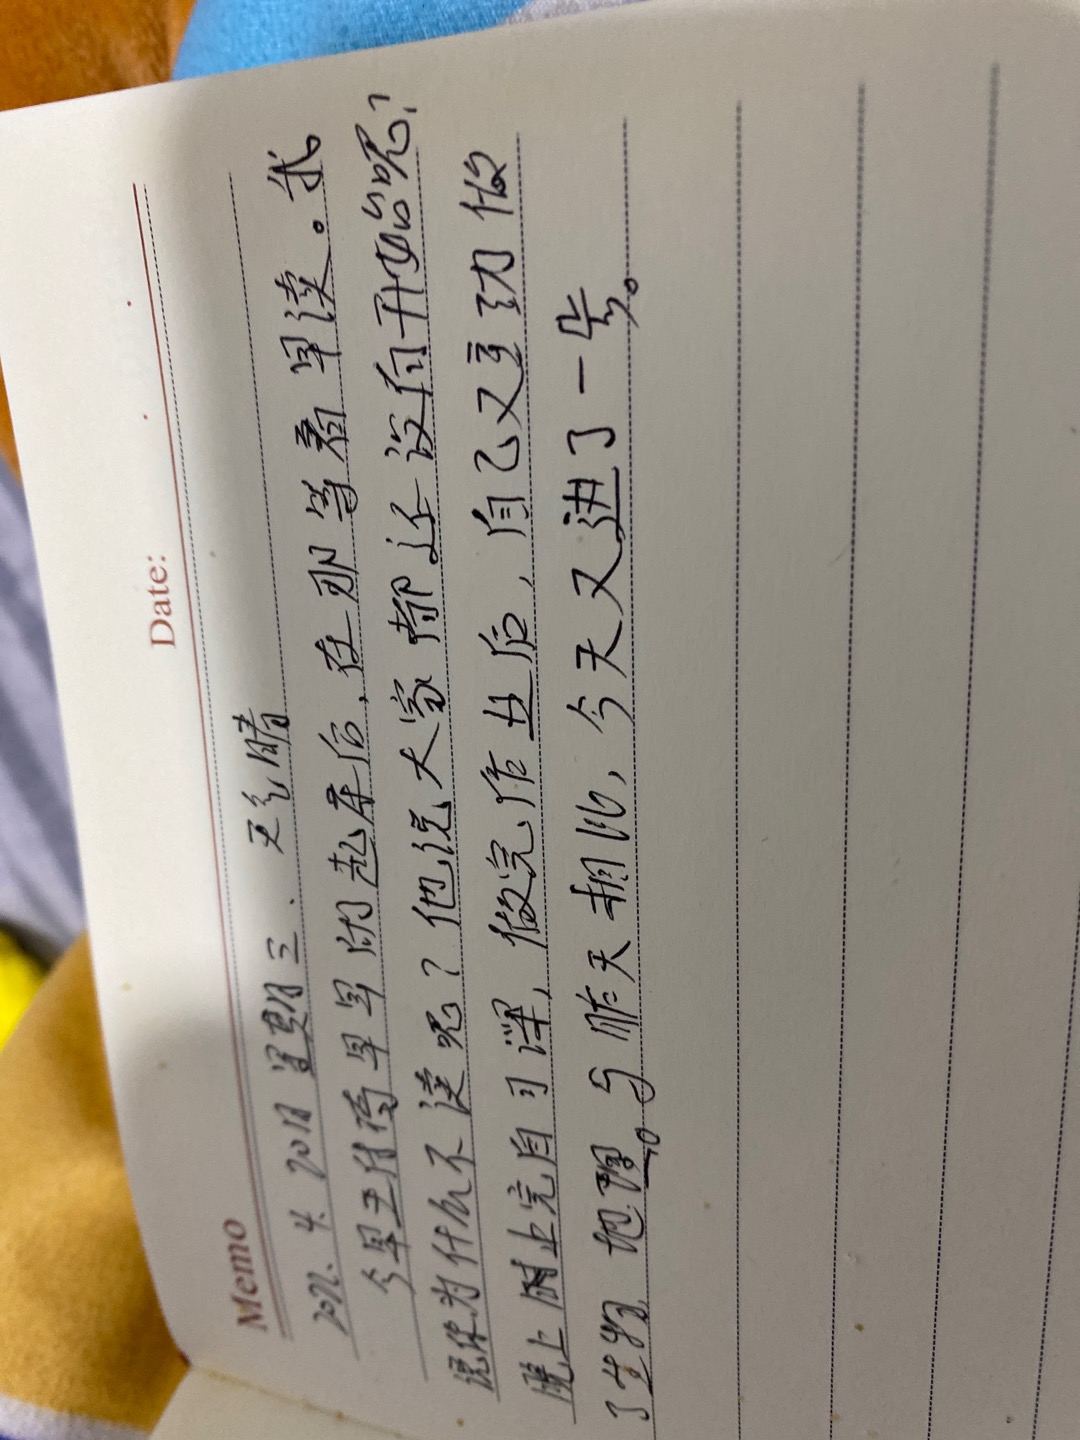 Memo
Date:
2022.4.20日 星期三、天气晴
今早王 早早的起床后,在那等着早读。我
说你为什么不读呢?他说大家都还没有开始呢?
晚上时上完自习课,做完作业后,自己又主动做
了生物 地理。与昨天相比,今天又进了一步。